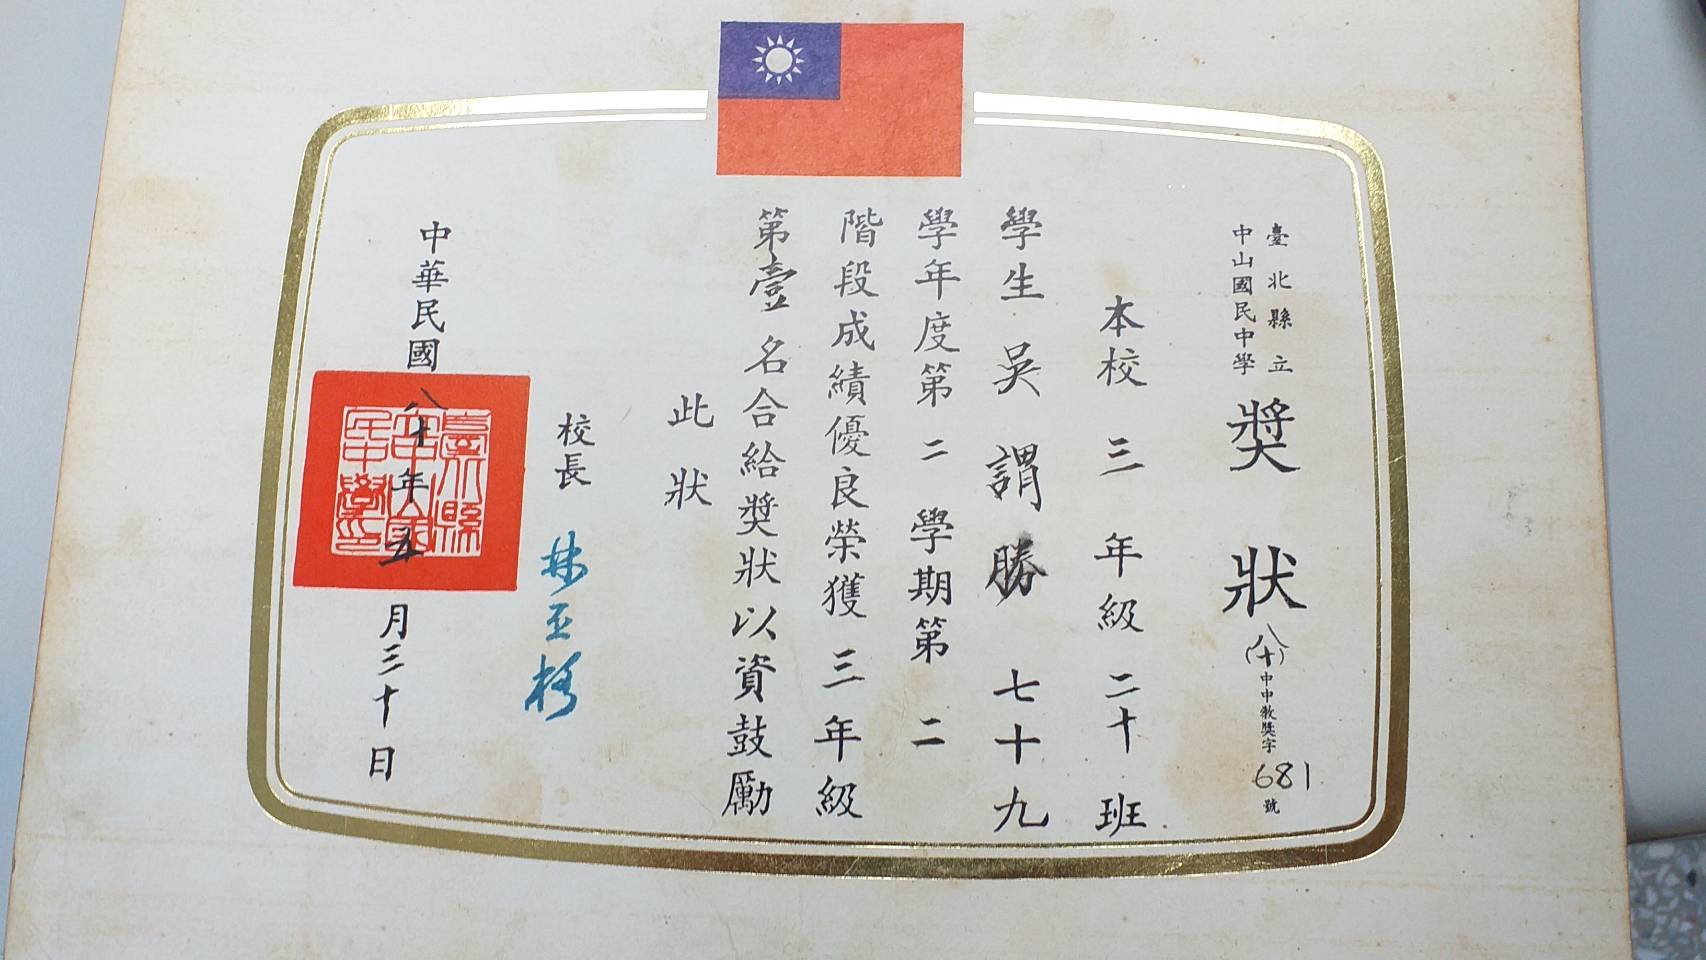 臺北縣立
中山國民中學
獎狀
(八十)中中教獎字681號
本校三年級二十班
學生吳謂勝七十九
學年度第二學期第二
階段成績優良榮獲三年級
第壹名合給獎狀以資鼓勵
此狀
校長
中華民國八十年五月三十日